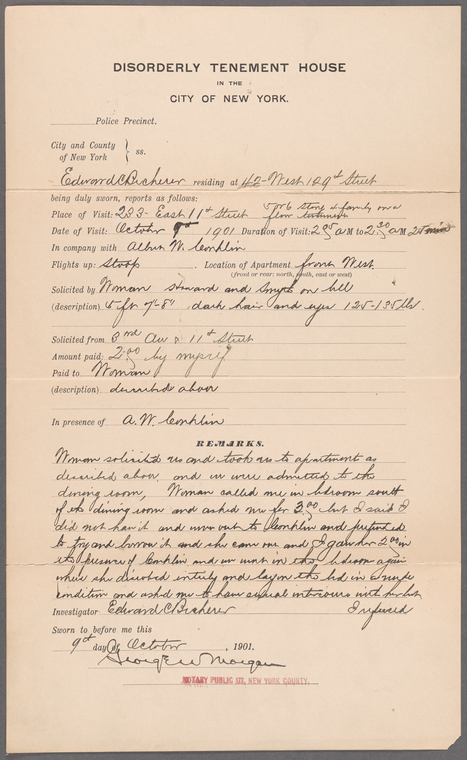 DISORDERLY TENEMENT HOUSE
IN THE
CITY OF NEW YORK.
Police Precinct.
City and County
of New York } ss.
Edward C Becherer residing at 42 West 129th Street
being duly sworn, reports as follows:
5 or 6 story 4 family on a
Place of Visit: 233 East 11th Street floor tenement
Date of Visit: October 9th 1901 Duration of Visit: 2 05 a M to 2:30 a M 25 min
In company with Albert W. Conklin
Flights up: Stoop Location of Apartment front West
(front or rear: north, south, east or west)
Solicited by Woman and on bell
(description) 5 ft 7"-8" dark hair and eyes 125-135 lbs.
Solicited from 3rd Av & 11th Street
Amount paid: 2.00 by myself
Paid to Woman
(description) described above
In presence of A. W. Conklin
REMARKS.
Woman solicited us and took us to apartment as
described above, and we were admitted to the
dining room, Woman called me in bedroom south
of the dining room and asked me for 3.00 but I said I
did not have it and went out to Conklin and pretended
to try and borrow it and she came out and I gave her 2.00 in
the presence of Conklin and we went in the bedroom again
where she disrobed entirely and lay on the bed in a nude
condition and asked me to have sexual intercourse with her but
Investigator Edward C Becherer I refused
Sworn to before me this
9th day of October, 1901.
George W Morgan
NOTARY PUBLIC, NEW YORK COUNTY.